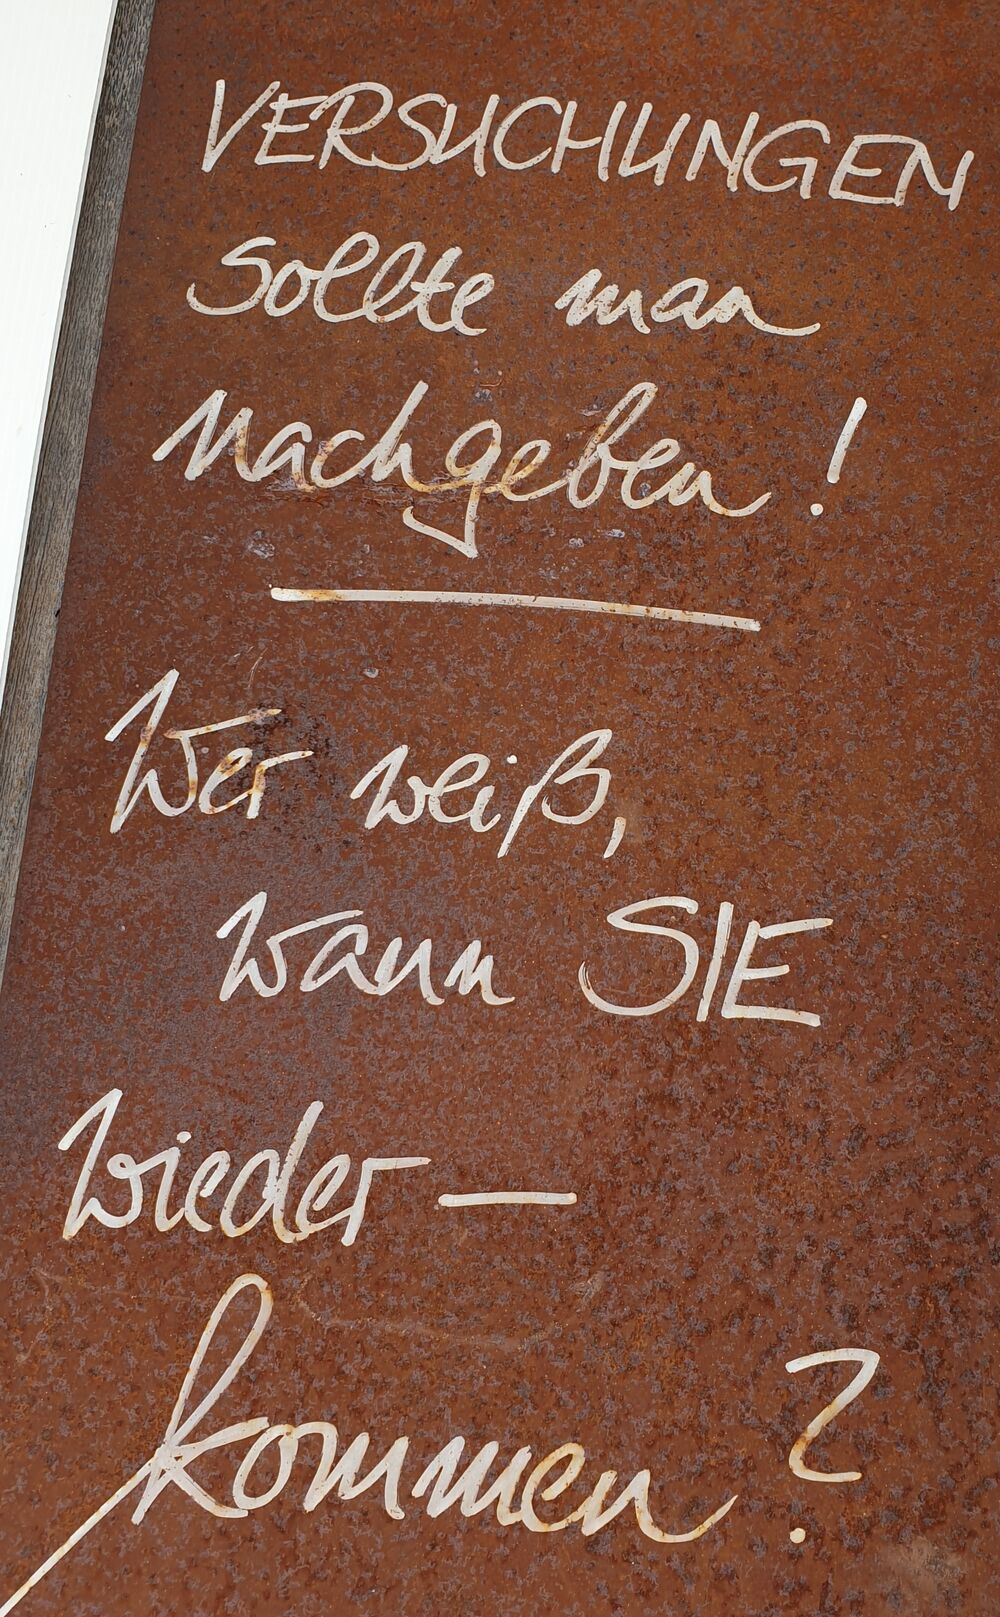 VERSUCHUNGEN
sollte man
nachgeben!
Wer weiß,
wann SIE
wieder—
kommen?